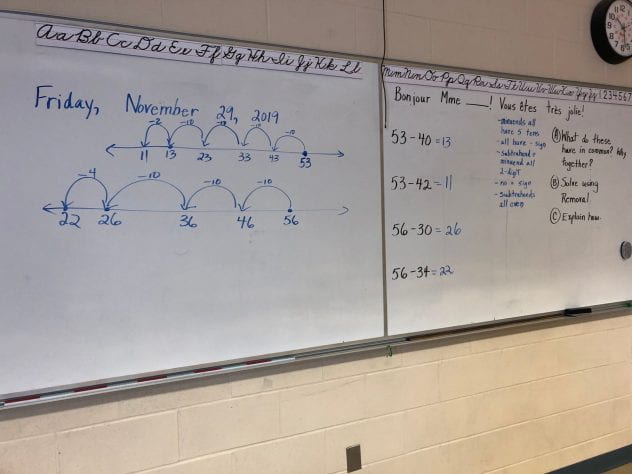 Aa Bb Cc Dd Ee Ff Gg Hh Ii Jj Kk Ll
Mm Nn Oo Pp Qq Rr Ss Tt Uu Vv Ww Xx Yy Zz 1 2 3 4 5 6 7
Friday, November 29, 2019
-2 -10 -10 -10 -10
11 13 23 33 43 53
-4 -10 -10 -10
22 26 36 46 56
Bonjour Mme ____! Vous êtes très jolie!
53-40 = 13
53-42 = 11
56-30 = 26
56-34 = 22
-minuends all
have 5 tens
-all have - sign
-subtrahend +
minuend all
2-digit
-no = sign
-subtrahends
all even
A What do these
have in common? Why
together?
B Solve using
Removal.
C Explain how.